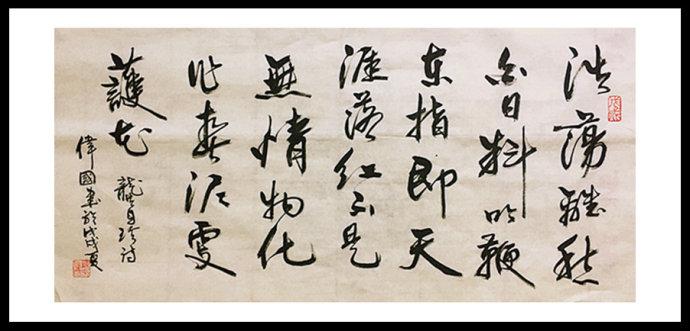 浩蕩離愁
白日斜吟鞭
东指即天
涯落红不是
無情物化
作春泥更
護花
龔自珍诗
偉國書於戊戌夏